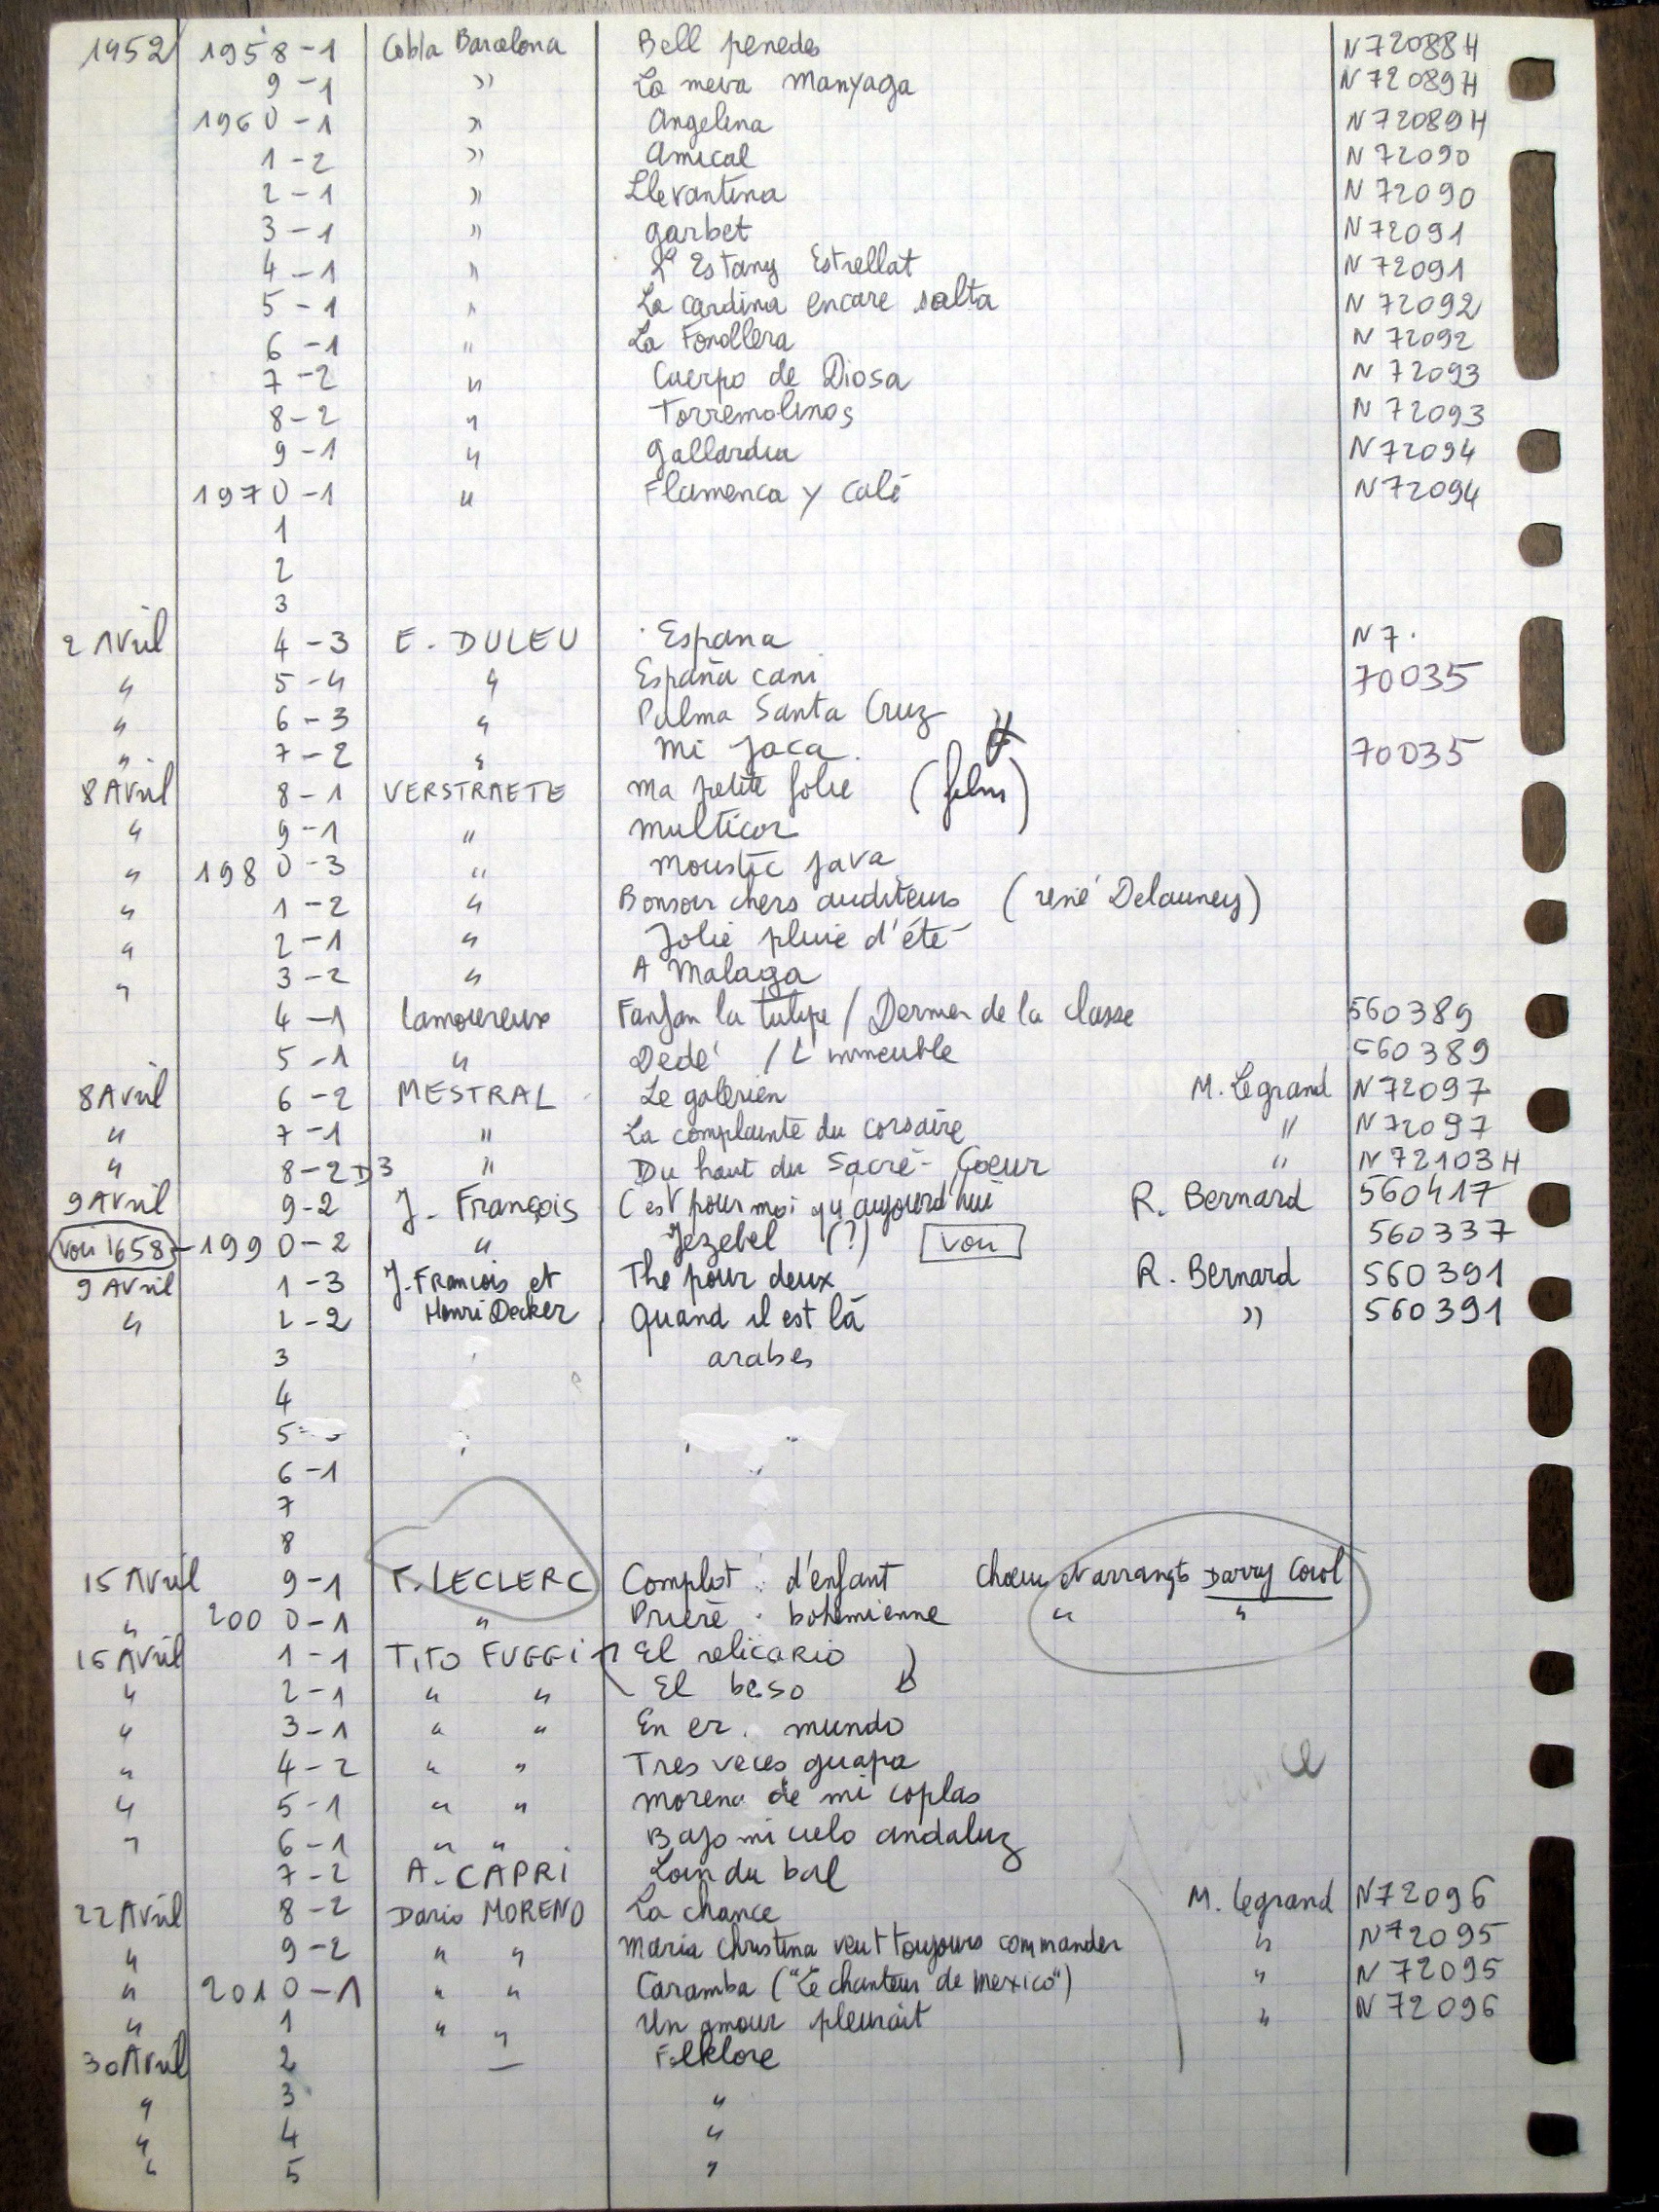 1952 1958-1 Cobla Barcelona Bell penedes N72088H
9-1 " La meva Manyaga N72089H
1960-1 " Angelina N72089H
1-2 " Amical N72090
2-1 " Llevantina N72090
3-1 " Garbet N72091
4-1 " L'Estany Estrellat N72091
5-1 " La cardina encare salta N72092
6-1 " La Fonollera N72092
7-2 " Cuerpo de Diosa N72093
8-2 " Torremolinos N72093
9-1 " Gallardia N72094
1970-1 " Flamenca y calé N72094
1
2
3
2 Avril 4-3 E. DULEU Espana N7.
" 5-4 " España cani 70035
" 6-3 " Palma Santa Cruz
" 7-2 " Mi Jaca 70035
8 Avril 8-1 VERSTRAETE Ma petite folie (film)
" 9-1 " Multicor
" 1980-3 " Moustic Java
" 1-2 " Bonsoir chers auditeurs (rené Delauney)
" 2-1 " Jolie pluie d'été
" 3-2 " A Malaga
4-1 Lamoureux Fanfan la tulipe / Dernier de la classe 560389
5-1 " Dédé / L'immeuble 560389
8 Avril 6-2 MESTRAL Le galérien M. Legrand N72097
" 7-1 " La complainte du corsaire " N72097
" 8-2D3 " Du haut du Sacré-Coeur " N72103H
9 Avril 9-2 J. François C'est pour moi qu'aujourd'hui R. Bernard 560417
voir 1658-1990-2 " Jezebel (?) voir 560337
9 Avril 1-3 J. Francois et The pour deux R. Bernard 560391
" 2-2 Henri Decker Quand il est là " 560391
3 arabes
4
5
6-1
7
8
15 Avril 9-1 F. LECLERC Complot d'enfant choeur et arrangts Darry Cowl
" 2000-1 " Prière bohémienne " "
16 Avril 1-1 TITO FUGGI El relicario
" 2-1 " " El beso
" 3-1 " " En er. mundo
" 4-2 " " Tres veces guapa
" 5-1 " " Morena de mi coplas
" 6-1 " " Bajo mi cielo andaluz
7-2 A. CAPRI Loin du bal
22 Avril 8-2 Dario MORENO La chance M. Legrand N72096
" 9-2 " " Maria Christina veut toujours commander " N72095
" 2010-1 " " Caramba ("Le chanteur de Mexico") " N72095
" 1 " " Un amour pleurait " N72096
30 Avril 2 — Folklore
" 3 "
" 4 "
" 5 "